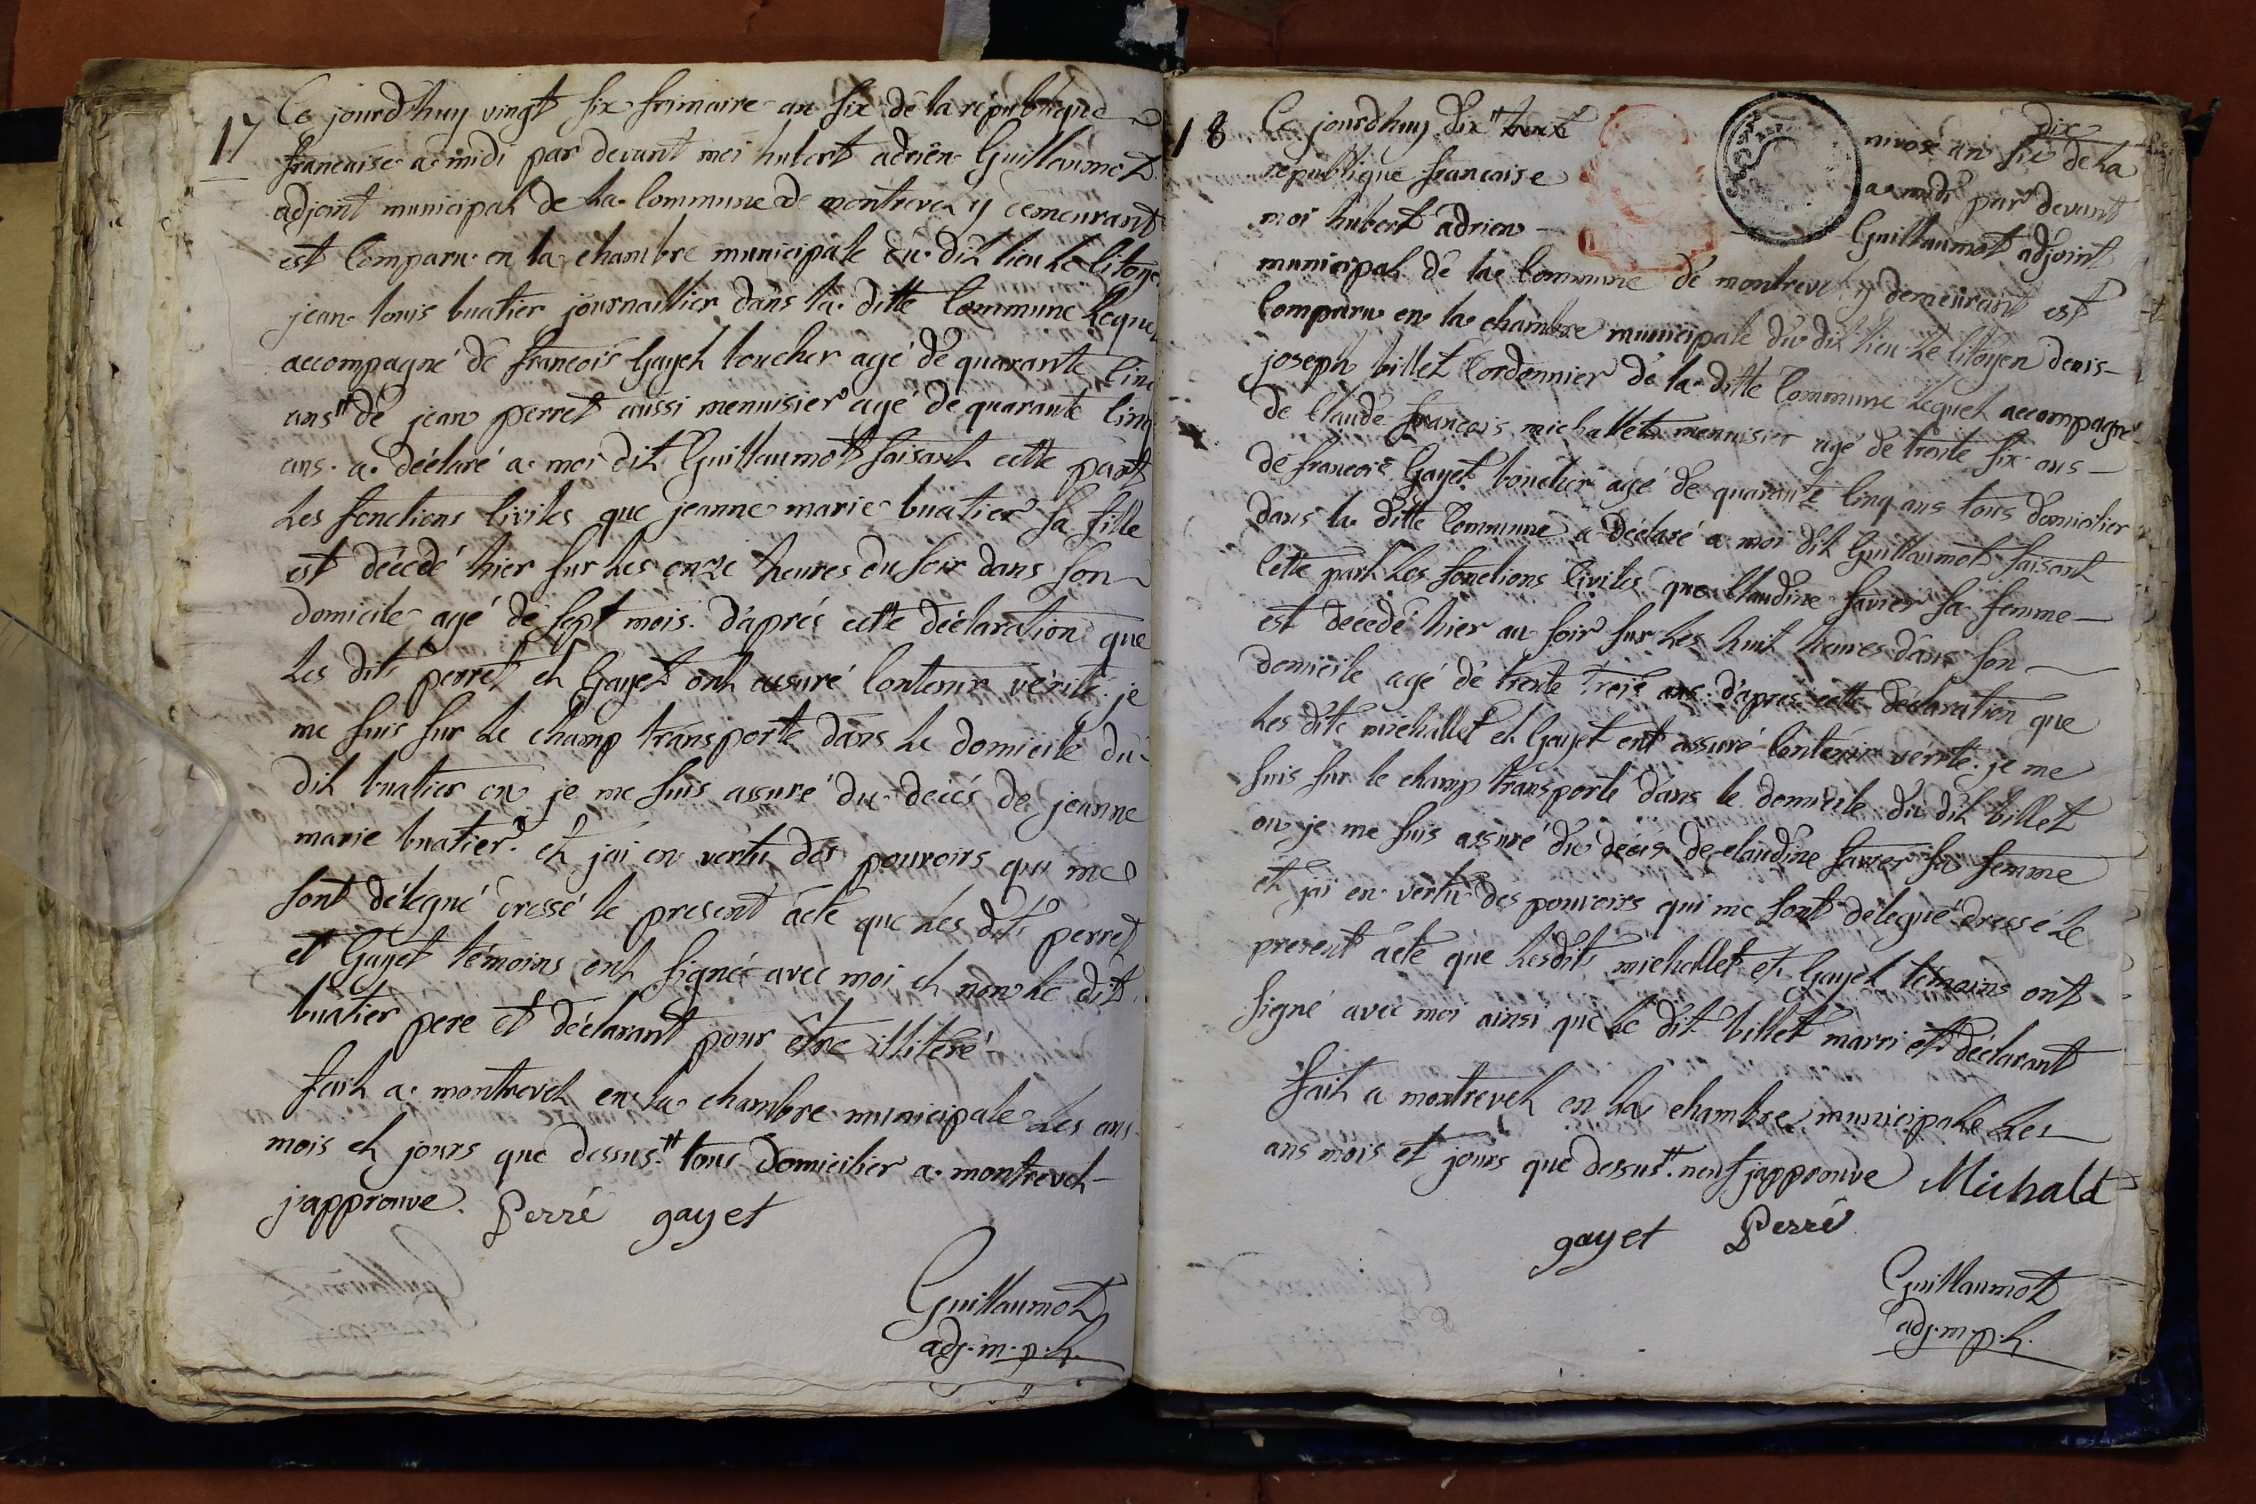 17
Ce jourdhuy vingt six frimaire an six de la republique
francaise a midi par devant moi hubert adrien Guillaumot
adjoint municipal de la Commune de montrevel y demeurant
est Comparu en la chambre municipale du dit lieu le Citoye
jean louis buatier journallier dans la ditte Commune lequel
accompagné de francois Gayet boucher agé de quarante Cinq
ans # de jean perret aussi mennisier agé de quarante Cinq
ans a déclaré a moi dit Guillaumot faisant cette part
les fonctions Civiles que jeanne marie buatier sa fille
est décédé hier sur les onze heures du soir dans son
domicile agé de sept mois. d'aprés cette déclaration que
les dits perret et Gayet ont assuré Contenir vérité. je
me suis sur le champ transporté dans le domicile du
dit buatier ou je me suis assuré du décés de jeanne
marie buatier. et jai en vertu des pouvoirs qui me
sont délegué dressé le present acte que les dits perret
et Gayet témoins ont signé avec moi et non le dit
buatier pere et déclarant pour être illiteré
fait a montrevel en la chambre municipale les ans
mois et jours que dessus. # tous domicilier a montrevel
japprouve. Perré gayet
Guillaumot
adj. m. p. l.
18
Ce jourdhuy dix # huit nivose an six de la
dix
republique francaise a midi par devant
moi hubert adrien Guillaumot adjoint
municipal de la Commune de montrevel y demeurant est
Comparu en la chambre municipale du dit lieu le Citoyen denis
joseph billet Cordennier de la ditte Commune lequel accompagné
de Claude francois michallet mennisier agé de trente six ans
de francois Gayet boucher agé de quarante Cinq ans tous domicilier
dans la ditte Commune a déclaré a moi dit Guillaumot faisant
Cette part les fonctions Civiles que Claudine favier sa femme
est décédé hier au soir sur les huit heures dans son
domicile agé de trente trois ans. d'apres cette déclaration que
les dits michallet et Gayet ont assuré Contenir vérité. je me
suis sur le champ transporté dans le domicile du dit billet
ou je me suis assuré du décés de claudine favier sa femme
et jai en vertu des pouvoirs qui me sont délegué dressé le
present acte que lesdits michallet et Gayet témoins ont
signé avec moi ainsi que le dit billet marri et déclarant
fait a montrevel en la chambre municipale les
ans mois et jours que dessus #. neuf japprouve Michalet
gayet Perré
Guillaumot
adj. m. p. l.